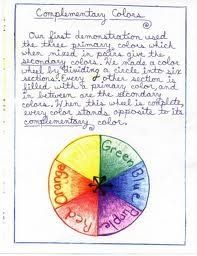 Complementary Colors
Our first demonstration used
the three primary colors which
when mixed in pairs give the
secondary colors. We made a color
wheel by dividing a circle into six
sections. Every other section is
filled with a primary color and
in between are the secondary
colors. When this wheel is complete
every color stands opposite to its
complementary color.
Green
Blue
Purple
Red
Orange